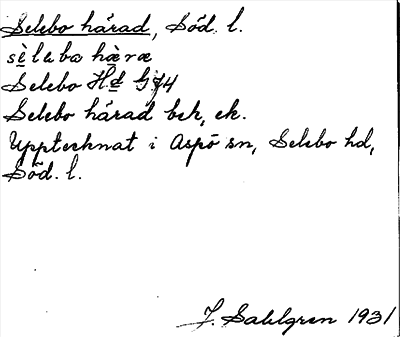 Selebo härad, Söd. l.
sèleba hæ̀ræ
Selebo Hd G 74
Selebo härad bek, ek.
Upptecknat i Aspö sn, Selebo hd,
Söd. l.
J. Sahlgren 1931